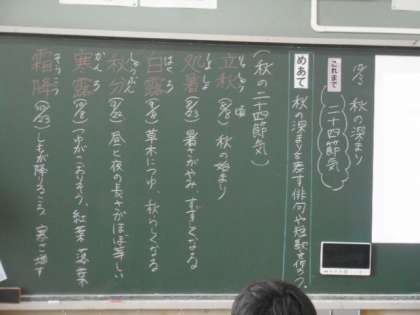 秋の深まり
これまで
二十四節気
めあて
秋の深まりを表す俳句や短歌を作ろう。
(秋の二十四節気)
立秋 りっしゅう (8/8)頃 秋の始まり
処暑 しょしょ (8/23) 暑さがやみ、すずしくなる
白露 はくろ (9/8) 草木につゆ、秋らしくなる
秋分 しゅうぶん (9/23) 昼と夜の長さがほぼ等しい
寒露 かんろ (10/8) つゆがこおりそう、紅葉 落葉
霜降 そうこう (10/23) しもが降りるころ 寒さ増す